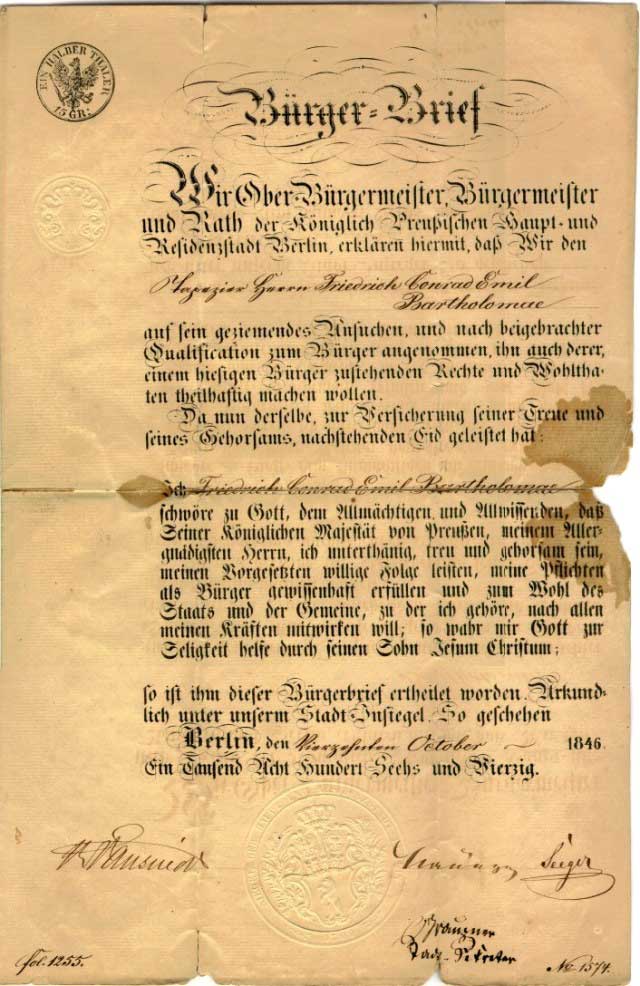 EIN HALBER THALER
15 GR:
Bürger-Brief
Wir Ober-Bürgermeister, Bürgermeister
und Rath der Königlich Preußischen Haupt- und
Residenzstadt Berlin, erklären hiermit, daß Wir den
Tapezier Herrn Friedrich Conrad Emil
Bartholomae
auf sein geziemendes Ansuchen, und nach beigebrachter
Qualification zum Bürger angenommen, ihn auch derer,
einem hiesigen Bürger zustehenden Rechte und Wohltha-
ten theilhaftig machen wollen.
Da nun derselbe, zur Versicherung seiner Treue und
seines Gehorsams, nachstehenden Eid geleistet hat:
Ich Friedrich Conrad Emil Bartholomae
schwöre zu Gott, dem Allmächtigen und Allwissenden, daß
Seiner Königlichen Majestät von Preußen, meinem Aller-
gnädigsten Herrn, ich unterthänig, treu und gehorsam sein,
meinen Vorgesetzten willige Folge leisten, meine Pflichten
als Bürger gewissenhaft erfüllen und zum Wohl des
Staats und der Gemeine, zu der ich gehöre, nach allen
meinen Kräften mitwirken will; so wahr mir Gott zur
Seligkeit helfe durch seinen Sohn Jesum Christum;
so ist ihm dieser Bürgerbrief ertheilet worden. Urkund-
lich unter unserm Stadt-Insiegel. So geschehen
Berlin, den Vierzehnten October 1846.
Ein Tausend Acht Hundert Sechs und Vierzig.
Seeger
Stadt-Sekretar
fol. 1255.
No. 1574.